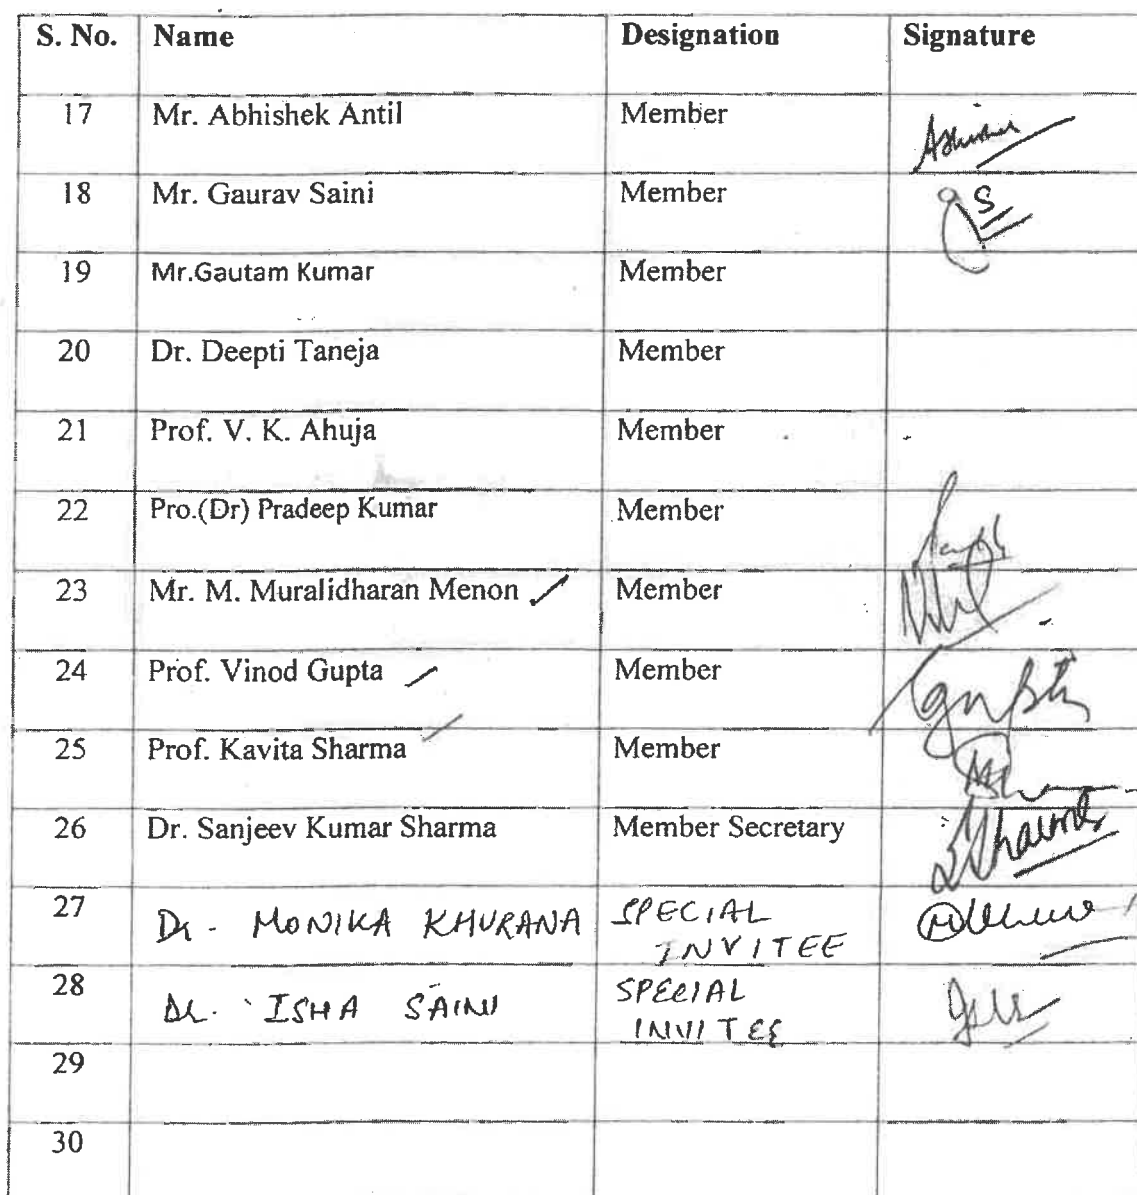 S. No. Name Designation Signature
17 Mr. Abhishek Antil Member
18 Mr. Gaurav Saini Member S
19 Mr.Gautam Kumar Member
20 Dr. Deepti Taneja Member
21 Prof. V. K. Ahuja Member
22 Pro.(Dr) Pradeep Kumar Member
23 Mr. M. Muralidharan Menon Member
24 Prof. Vinod Gupta Member Gupta
25 Prof. Kavita Sharma Member
26 Dr. Sanjeev Kumar Sharma Member Secretary
27 Dr. MONIKA KHURANA SPECIAL
INVITEE
28 Dr. ISHA SAINI SPECIAL
INVITEE
29
30